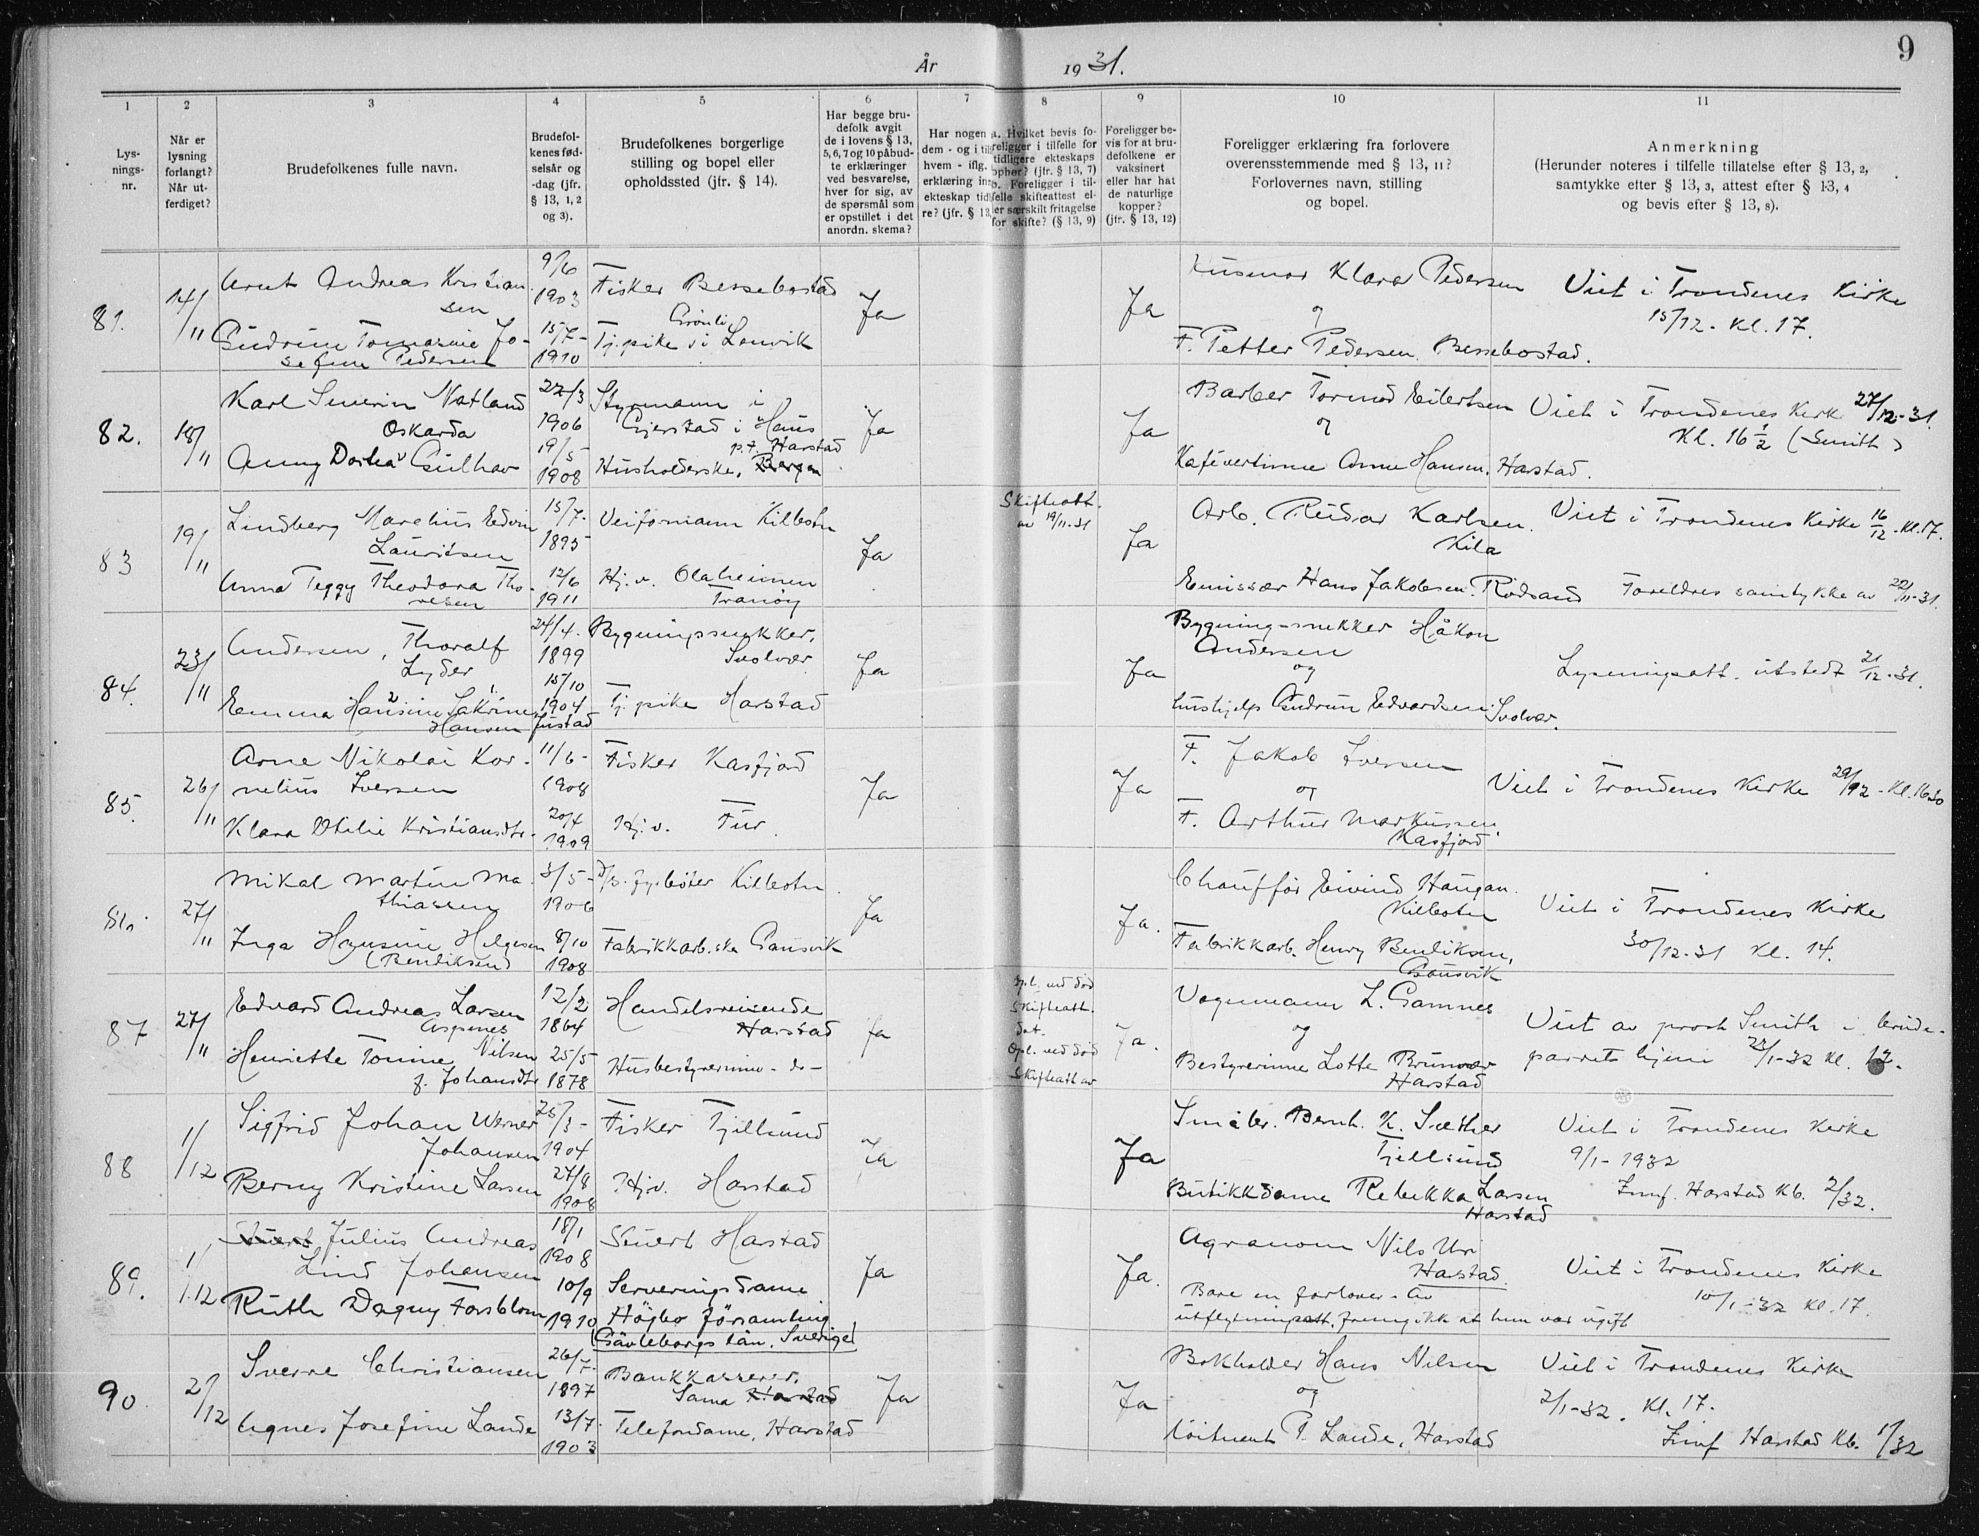 9
År 1931.
1 2 3 4 5 6 7 8 9 10 11
Lys-
nings-
nr.
Når er
lysning
forlangt?
Når ut-
ferdiget?
Brudefolkenes fulle navn.
Brudefol-
kenes fød-
selsår og
-dag (jfr.
§ 13, 1, 2
og 3).
Brudefolkenes borgerlige
stilling og bopel eller
opholdssted (jfr. § 14).
Har begge bru-
defolk avgit
de i lovens § 13,
5, 6, 7 og 10 påbud-
te erklæringer
ved besvarelse,
hver for sig, av
de spørsmål som
er opstillet i det
anordn. skema?
Har nogen a
dem - og i til
hvem - iflg.
erklæring in
ekteskap tid
re? (jfr. § 13,
Hvilket bevis fo-
religger i tilfelle for
tidligere ekteskaps
ophør? (jfr. § 13, 7)
b. Foreligger i til-
felle skifteattest el-
er særskilt fritagelse
for skifte? (§ 13, 9)
Foreligger be-
vis for at bru-
defolkene er
vaksinert
eller har hat
de naturlige
kopper?
(jfr. § 13, 12)
Foreligger erklæring fra forlovere
overensstemmende med § 13, 11?
Forlovernes navn, stilling
og bopel.
Anmerkning
(Herunder noteres i tilfelle tillatelse efter § 13, 2,
samtykke efter § 13, 3, attest efter § 13, 4
og bevis efter § 13, 8).
81. 14/11
Arnt Andreas Kristian-
sen
9/6 1903
Fisker Bessebostad
Gudrun Tomasine Jo-
sefine Pedersen
15/7- 1910
Grønli
Tj.pike i Lonvik
Ja
Ja
Husmor Klara Pedersen
og
F. Petter Pedersen Bessebostad.
Viet i Trondenes Kirke
15/12- Kl. 17.
82. 18/11
Karl Severin Natland
Oskarda
22/3 1906
Styrmann i
Gjerstad i Haus
p.t. Harstad
Anny Dorthea Gulhav
19/5- 1908
Husholderske, Bergen
Ja
Ja
Barber Tormod Eilertsen
og
Kafévertinne Anne Hansen, Harstad.
Viet i Trondenes Kirk 27/12-31.
Kl. 16 1/2 (Smith)
83 19/11
Lindberg Marelius Edvin
Lauritsen
15/7- 1895
Veiformann Kilbotn
Anna Peggy Theodora Tho-
resen
12/6 1911
Hj.v. Olaheimen
Tranøy
Ja
Skifteatt.
av 19/11-31
Ja
Arb. Reidar Karlsen.
Kila
Emissær Hans Jakobsen. Rødsand
Viet i Trondenes Kirke 16/12. Kl. 17.
Foreldres samtykke av 22/11-31.
84. 23/11
Andersen, Thoralf
Lyder
24/4. 1899
Bygningssnekker,
Svolvær
Emma Hansine Sakrine
Hansen Justad
15/10 1904
Tj.pike Harstad
Ja
Ja
Bygningssnekker Håkon
Andersen
og
hushjelp Gudrun Edvardsen Svolvær.
Lysningsatt. utstedt 21/12-31.
85. 26/11
Arne Nikolai Kor-
nelius Iversen
11/6- 1908
Fisker Kasfjord
Klara Otilie Kristiansdtr.
20/4 1909
Hj.v. Fur.
Ja
Ja
F. Jakob Iversen
og
F. Arthur Markussen
Kasfjord
Viet i Trondenes Kirke 29/12 - Kl. 16.30
86. 27/11
Mikal Martin Ma-
thiassen
3/5- 1906
D/s. fyrbøter Kilbotn
Inga Hansine Helgesen
(Bendiksen)
8/10 1908
Fabrikkarb.ske Gausvik
Ja
Ja.
Chauffør Eivind Haugan.
Kilbotn
Fabrikkarb. Henry Bendiksen,
Gausvik
Viet i Trondenes Kirke
30/12-31 Kl. 14.
87 27/11
Edvard Andreas Larsen
Aspenes
12/2 1864
Handelsreisende
Harstad
Henriette Tomine Nilsen
f. Johansdtr
25/5 1878
Husbestyrerinne - do -
Ja
Opl. ved død
Skifteatt.
dat.
Opl. ved død
Skifteatt av
Ja.
Vognmann L. Gamnes
og
Bestyrerinne Lotte Brunvær
Harstad
Viet av prost Smith i brude-
parrets hjem 23/1-32 Kl. 17.
88 1/12
Sigfrid Johan Werner
Johansen
25/3- 1904
Fisker Tjellsund
Berny Kristine Larsen
27/8 1908
Hj.v. Harstad
Ja
Ja
Småbr. Bernh. K. Sæther
Tjellsund
Butikkdame Rebekka Larsen
Harstad
Viet i Trondenes Kirke
9/1-1932
Innf. Harstad Kb. 2/32.
89. 1/12
Julius Andreas
Lind Johansen
18/1 1908
Stuert Harstad
Ruth Dagny Forsblom
10/9 1910
Serveringsdame
Högbo församling
(Gävleborgs län, Sverige)
Ja
Ja.
Agronom Nils Ur
Harstad
Bare en forlover. Av
utflytningsatt. fremgikk at hun var ugift
Viet i Trondenes Kirke
10/1-32 Kl. 17.
90 2/12
Sverre Christiansen
26/7- 1897
Bankkasserer.
Sama Harstad
Agnes Josefine Lande
13/7. 1903
Telefondame, Harstad
Ja
Ja
Bokholder Hans Nilsen
og
løitnant P. Lande, Harstad
Viet i Trondenes Kirke
2/1-32. Kl. 17.
Innf Harstad Kb. 1/32